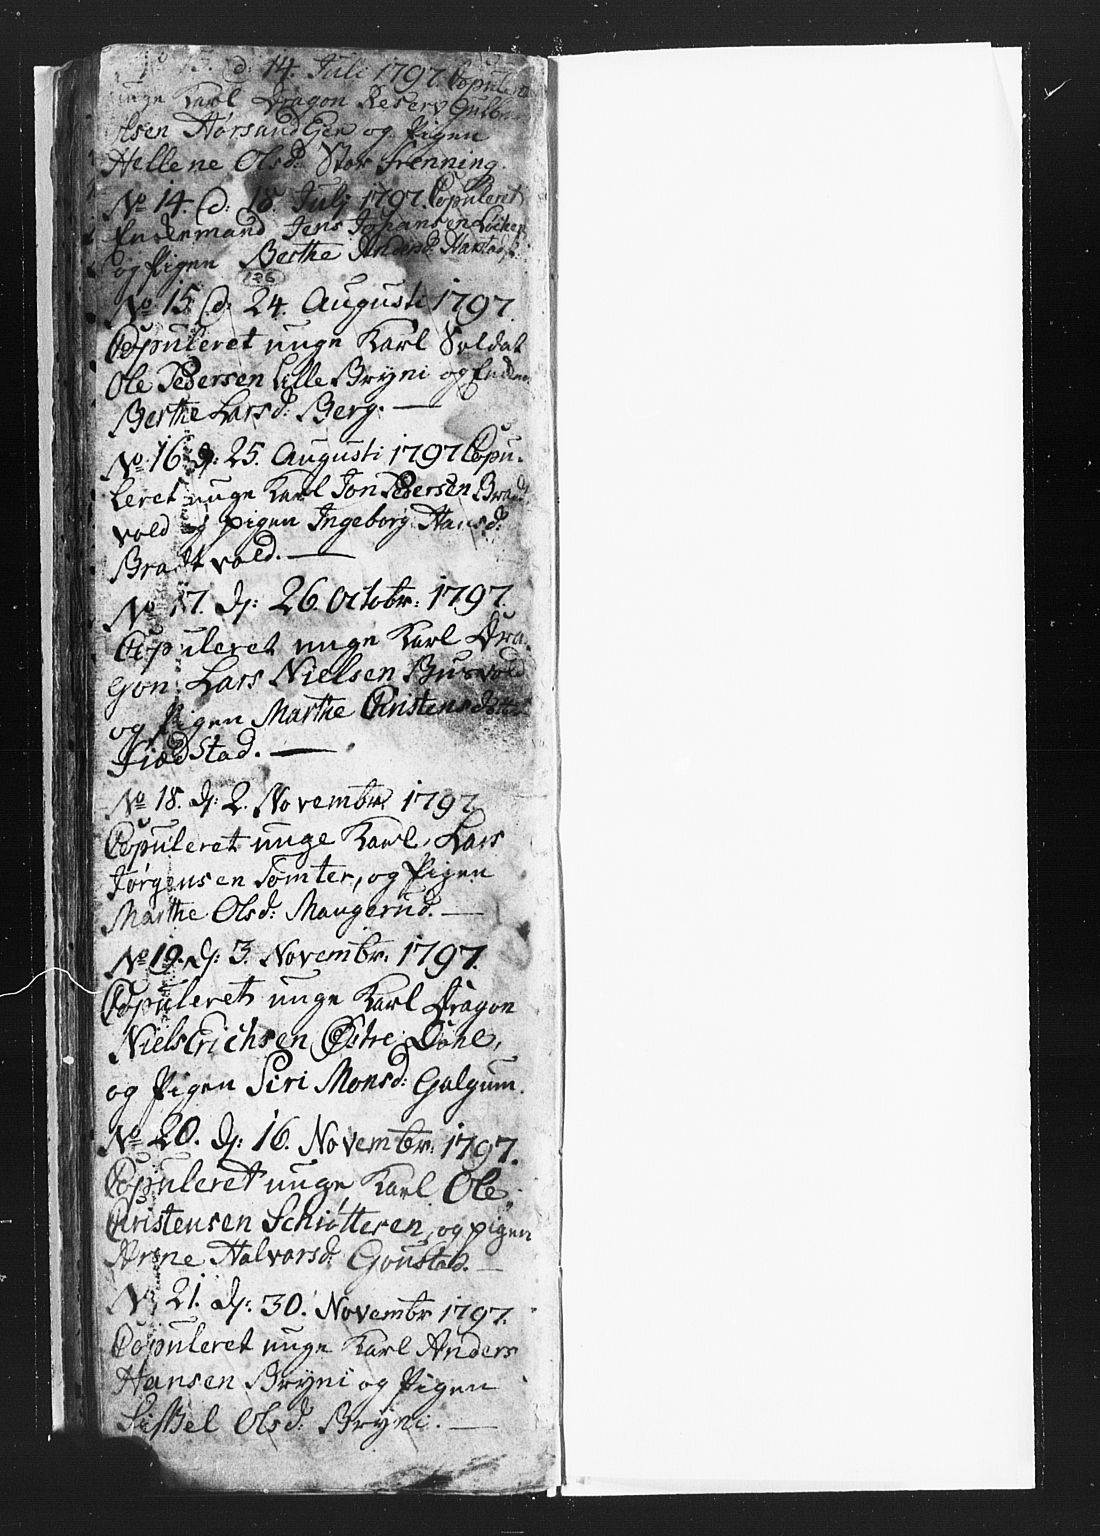 13. d: 14. Juli 1797. Copuleret
unge Karl Dragon Reserv Gulbr
Hørsand Eier og Pigen
Hellene Olsd: Stor Frenning.
No 14. d: 18. Julj 1797. Copuleret
Enkemand Jens Johansen Løchen
og Pigen Berthe Andersd: Harstad
126
No 15. d: 24. Augusti 1797.
Copuleret unge Karl Soldat
Ole Pedersen Lille Bryni og Enken
Berthe Larsd: Berg. —
No 16. d: 25. Augusti 1797 Copu-
leret unge Karl Jon Pedersen Bradt
vold og pigen Ingeborg Hansd:
Bradtvold. —
No 17. d: 26. Octobr: 1797.
Copuleret unge Karl Dra-
gon Lars Nielsen Busvold
og Pigen Marthe Christensdotter
Fiædstad. —
No 18. d: 2. Novembr: 1797.
Copuleret unge Karl, Lars
Jørgensen Tomter, og Pigen
Marthe Olsd: Maugerud. —
No 19. d: 3. Novembr: 1797.
Copuleret unge Karl Dragon
Niels Erichsen Østre Døhl,
og Pigen Siri Monsd: Galgum.
No 20. d: 16. Novembr: 1797.
Copuleret unge Karl Ole
Christensen Schiøtteren, og pigen
Arne Halvorsd: Gonstad. —
No 21. d: 30. Novembr 1797.
Copuleret unge Karl Anders
Hansen Bryni og Pigen
Sissel Olsd: Bryni. —